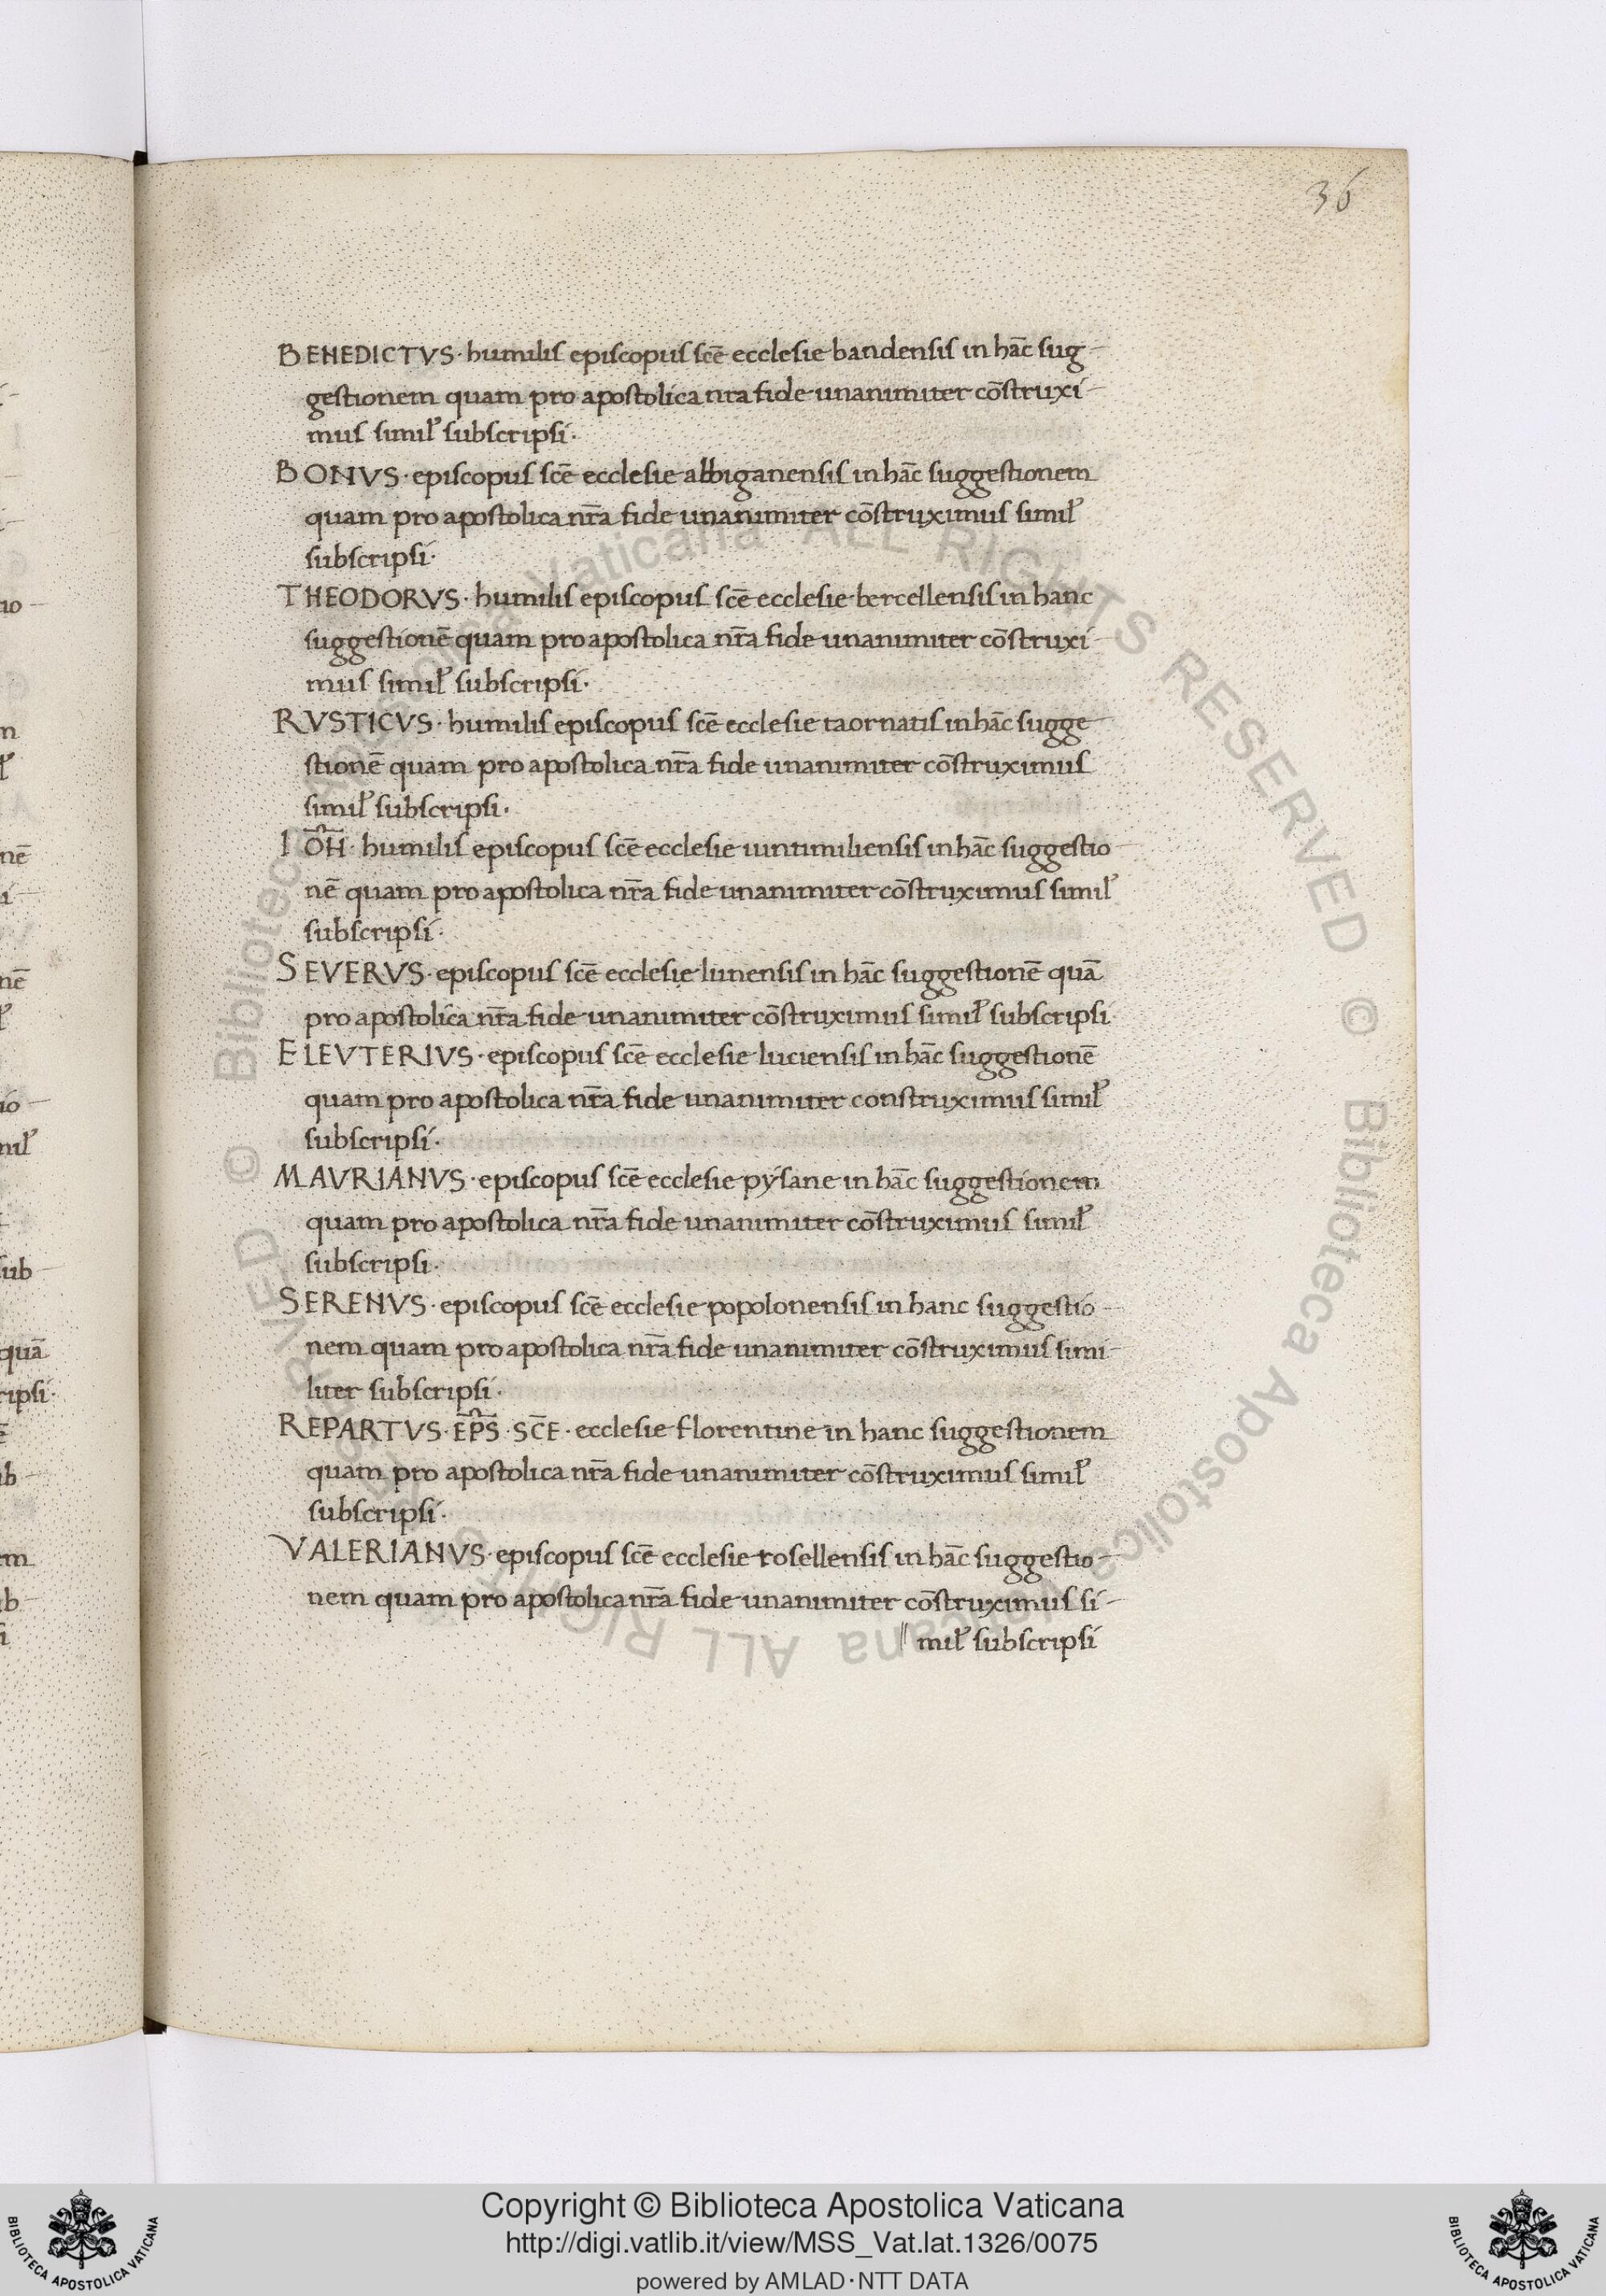 36
BENEDICTVS· humilis episcopus scē ecclesie bandensis in hāc sug-
gestionem quam pro apostolica nra fide unanimiter cōstruxi-
mus simil̕ subscripsi·
BONVS· episcopus scē ecclesie albiganensis in hāc suggestionem
quam pro apostolica nr̄a fide unanimiter cōstruximus simil̕
subscripsi·
THEODORVS· humilis episcopus scē ecclesie bercellensis in hanc
suggestionē quam pro apostolica nr̄a fide unanimiter cōstruxi-
mus simil̕ subscripsi·
RVSTICVS· humilis episcopus scē ecclesie taornatis in hāc sugge-
stionē quam pro apostolica nr̄a fide unanimiter cōstruximus
simil̕ subscripsi·
IOH̄· humilis episcopus scē ecclesie uintimiliensis in hāc suggestio-
nē quam pro apostolica nr̄a fide unanimiter cōstruximus simil̕
subscripsi·
SEVERVS· episcopus scē ecclesie lunensis in hāc suggestionē quā
pro apostolica nr̄a fide unanimiter cōstruximus simil̕ subscripsi
ELEVTERIVS· episcopus scē ecclesie luciensis in hāc suggestionē
quam pro apostolica nr̄a fide unanimiter construximus simil̕
subscripsi·
MAVRIANVS· episcopus scē ecclesie pysane in hāc suggestionem
quam pro apostolica nr̄a fide unanimiter cōstruximus simil̕
subscripsi·
SERENVS· episcopus scē ecclesie popolonensis in hanc suggestio-
nem quam pro apostolica nr̄a fide unanimiter cōstruximus simi-
liter subscripsi·
REPARTVS· EP̄S· SC̄E· ecclesie florentine in hanc suggestionem
quam pro apostolica nr̄a fide unanimiter cōstruximus simil̕
subscripsi·
VALERIANVS· episcopus scē ecclesie rosellensis in hāc suggestio-
nem quam pro apostolica nr̄a fide unanimiter cōstruximus si-
‖ mil̕ subscripsi
Copyright © Biblioteca Apostolica Vaticana
http://digi.vatlib.it/view/MSS_Vat.lat.1326/0075
powered by AMLAD·NTT DATA